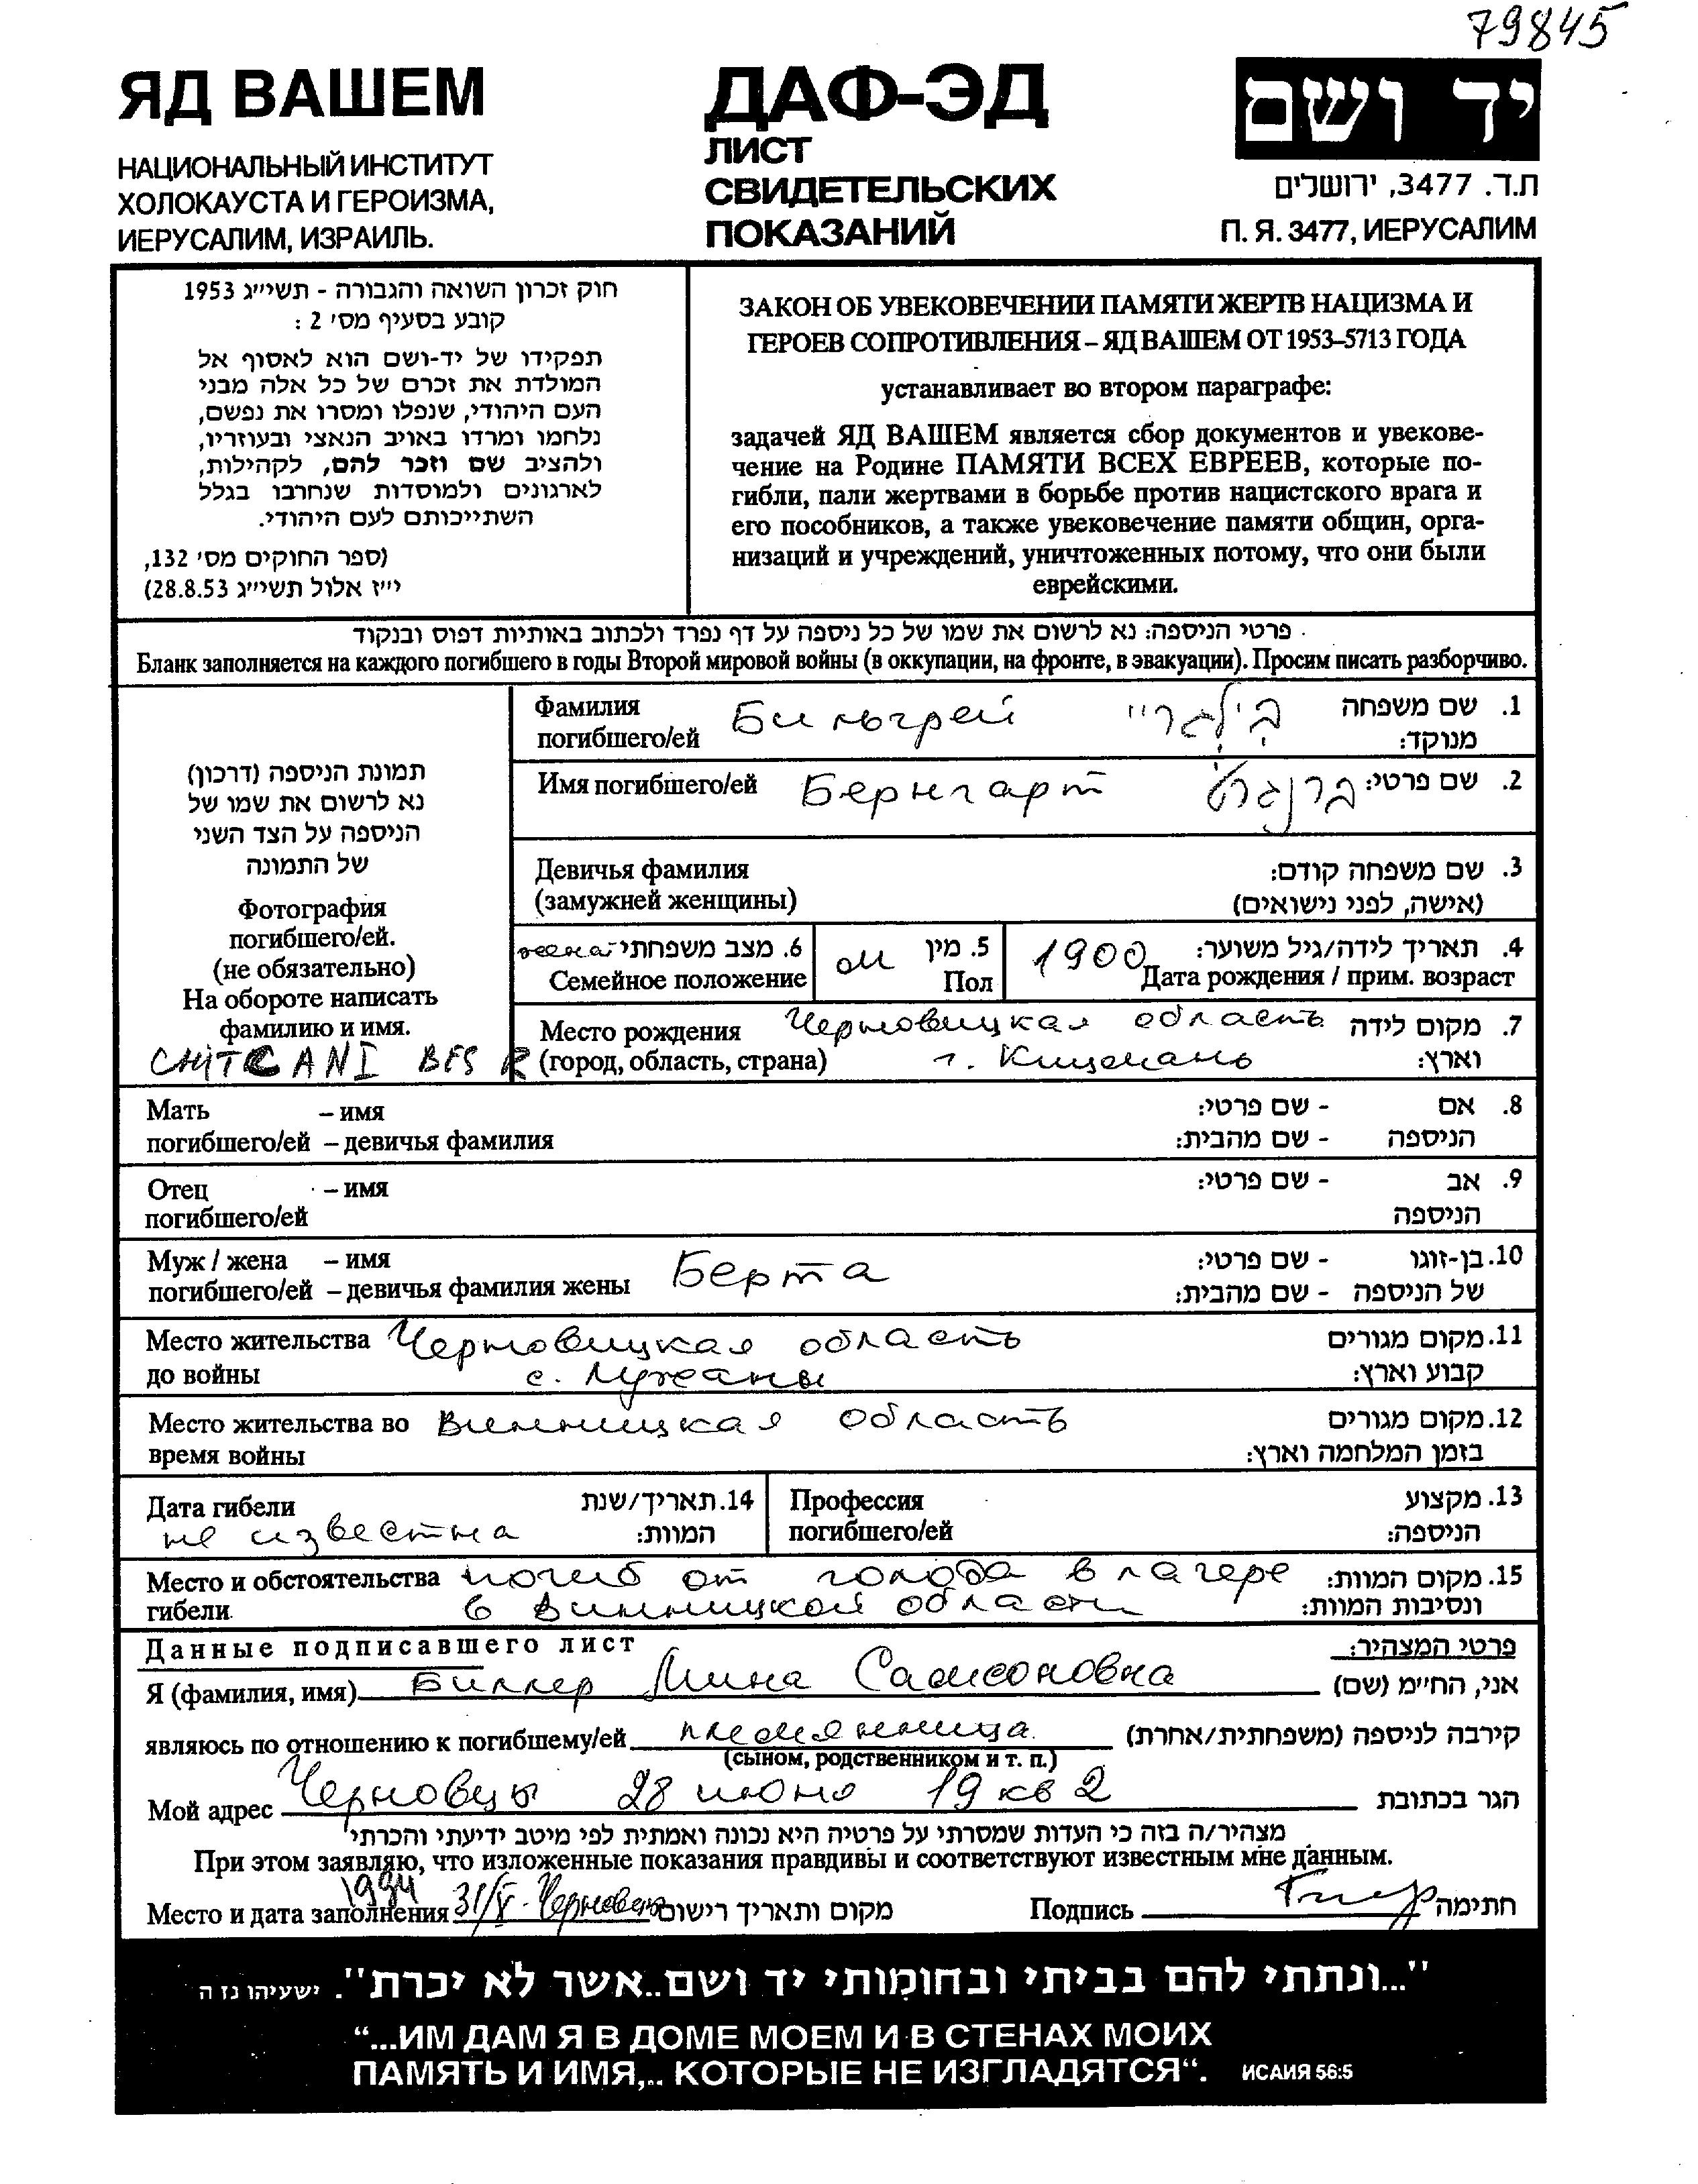 79845
ЯД ВАШЕМ
НАЦИОНАЛЬНЫЙ ИНСТИТУТ
ХОЛОКАУСТА И ГЕРОИЗМА,
ИЕРУСАЛИМ, ИЗРАИЛЬ.
ДАФ-ЭД
ЛИСТ
СВИДЕТЕЛЬСКИХ
ПОКАЗАНИЙ
יד ושם
ת.ד. 3477, ירושלים
П. Я. 3477, ИЕРУСАЛИМ
חוק זכרון השואה והגבורה - תשי״ג 1953
קובע בסעיף מס׳ 2 :
תפקידו של יד-ושם הוא לאסוף אל
המולדת את זכרם של כל אלה מבני
העם היהודי, שנפלו ומסרו את נפשם,
נלחמו ומרדו באויב הנאצי ובעוזריו,
ולהציב שם וזכר להם, לקהילות,
לארגונים ולמוסדות שנחרבו בגלל
השתייכותם לעם היהודי.
(ספר החוקים מס׳ 132,
י״ז אלול תשי״ג 28.8.53)
ЗАКОН ОБ УВЕКОВЕЧЕНИИ ПАМЯТИ ЖЕРТВ НАЦИЗМА И
ГЕРОЕВ СОПРОТИВЛЕНИЯ – ЯД ВАШЕМ ОТ 1953–5713 ГОДА
устанавливает во втором параграфе:
задачей ЯД ВАШЕМ является сбор документов и увекове-
чение на Родине ПАМЯТИ ВСЕХ ЕВРЕЕВ, которые по-
гибли, пали жертвами в борьбе против нацистского врага и
его пособников, а также увековечение памяти общин, орга-
низаций и учреждений, уничтоженных потому, что они были
еврейскими.
פרטי הניספה: נא לרשום את שמו של כל ניספה על דף נפרד ולכתוב באותיות דפוס ובנקוד
Бланк заполняется на каждого погибшего в годы Второй мировой войны (в оккупации, на фронте, в эвакуации). Просим писать разборчиво.
תמונת הניספה (דרכון)
נא לרשום את שמו של
הניספה על הצד השני
של התמונה
Фотография
погибшего/ей.
(не обязательно)
На обороте написать
фамилию и имя.
CHITCANI BES R
Фамилия Бильгрей בילגריי 1. שם משפחה
погибшего/ей מנוקד:
Имя погибшего/ей Бернгарт ברנגרט 2. שם פרטי:
Девичья фамилия 3. שם משפחה קודם:
(замужней женщины) (אישה, לפני נישואים)
4. תאריך לידה/גיל משוער: 1900 5. מין м 6. מצב משפחתי женат
Дата рождения / прим. возраст Пол Семейное положение
Место рождения Черновицкая область 7. מקום לידה
(город, область, страна) г. Кицмань וארץ:
Мать – имя 8. אם - שם פרטי:
погибшего/ей – девичья фамилия הניספה - שם מהבית:
Отец – имя 9. אב - שם פרטי:
погибшего/ей הניספה
Муж / жена – имя Берта 10. בן-זוגו - שם פרטי:
погибшего/ей – девичья фамилия жены של הניספה - שם מהבית:
Место жительства Черновицкая область 11. מקום מגורים
до войны с. Лужаны קבוע וארץ:
Место жительства во Винницкая область 12. מקום מגורים
время войны בזמן המלחמה וארץ:
Дата гибели 14. תאריך/שנת Профессия 13. מקצוע
не известна המוות: погибшего/ей הניספה:
Место и обстоятельства погиб от голода в лагере 15. מקום המוות:
гибели. в Винницкой области ונסיבות המוות:
Данные подписавшего лист פרטי המצהיר:
Я (фамилия, имя) Биллер Мина Самсоновна אני, הח״מ (שם)
являюсь по отношению к погибшему/ей племянница קירבה לניספה (משפחתית/אחרת)
(сыном, родственником и т. п.)
Мой адрес Черновцы 28 июня 19 кв 2 הגר בכתובת
מצהיר/ה בזה כי העדות שמסרתי על פרטיה היא נכונה ואמתית לפי מיטב ידיעתי והכרתי
При этом заявляю, что изложенные показания правдивы и соответствуют известным мне данным.
1994
Место и дата заполнения 31/V - Черновцы מקום ותאריך רישום Подпись חתימה
"...ונתתי להם בביתי ובחומותי יד ושם..אשר לא יכרת". ישעיהו נז ה
“...ИМ ДАМ Я В ДОМЕ МОЕМ И В СТЕНАХ МОИХ
ПАМЯТЬ И ИМЯ,.. КОТОРЫЕ НЕ ИЗГЛАДЯТСЯ“. ИСАИЯ 56:5